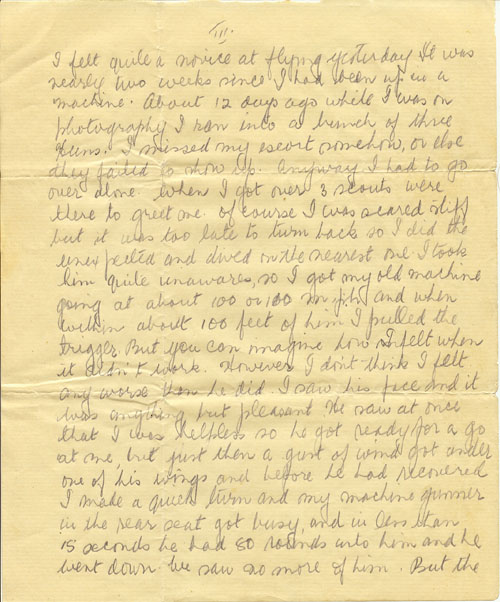 III.
I felt quite a novice at flying yesterday It was
nearly two weeks since I had been up in a
machine. About 12 days ago while I was on
photography I ran into a bunch of three
Huns. I missed my escort somehow, or else
they failed to show up. Anyway I had to go
over alone when I got over 3 scouts were
there to greet me of course I was scared stiff
but it was too late to turn back so I did the
unexpected and dived on the nearest one I took
him quite unawares, so I got my old machine
going at about 100 or m.p.h. and when
within about 100 feet of him I pulled the
trigger. But you can imagine how I felt when
it didn't work. However I don't think I felt
any worse than he did. I saw his face and it
was anything but pleasant He saw at once
that I was helpless so he got ready for a go
at me, but just then a gust of wind got under
one of his wings and before he had recovered
I made a quick turn and my machine gunner
in the rear seat got busy, and in less than
15 seconds he had 80 rounds into him and he
went down we saw no more of him. But the